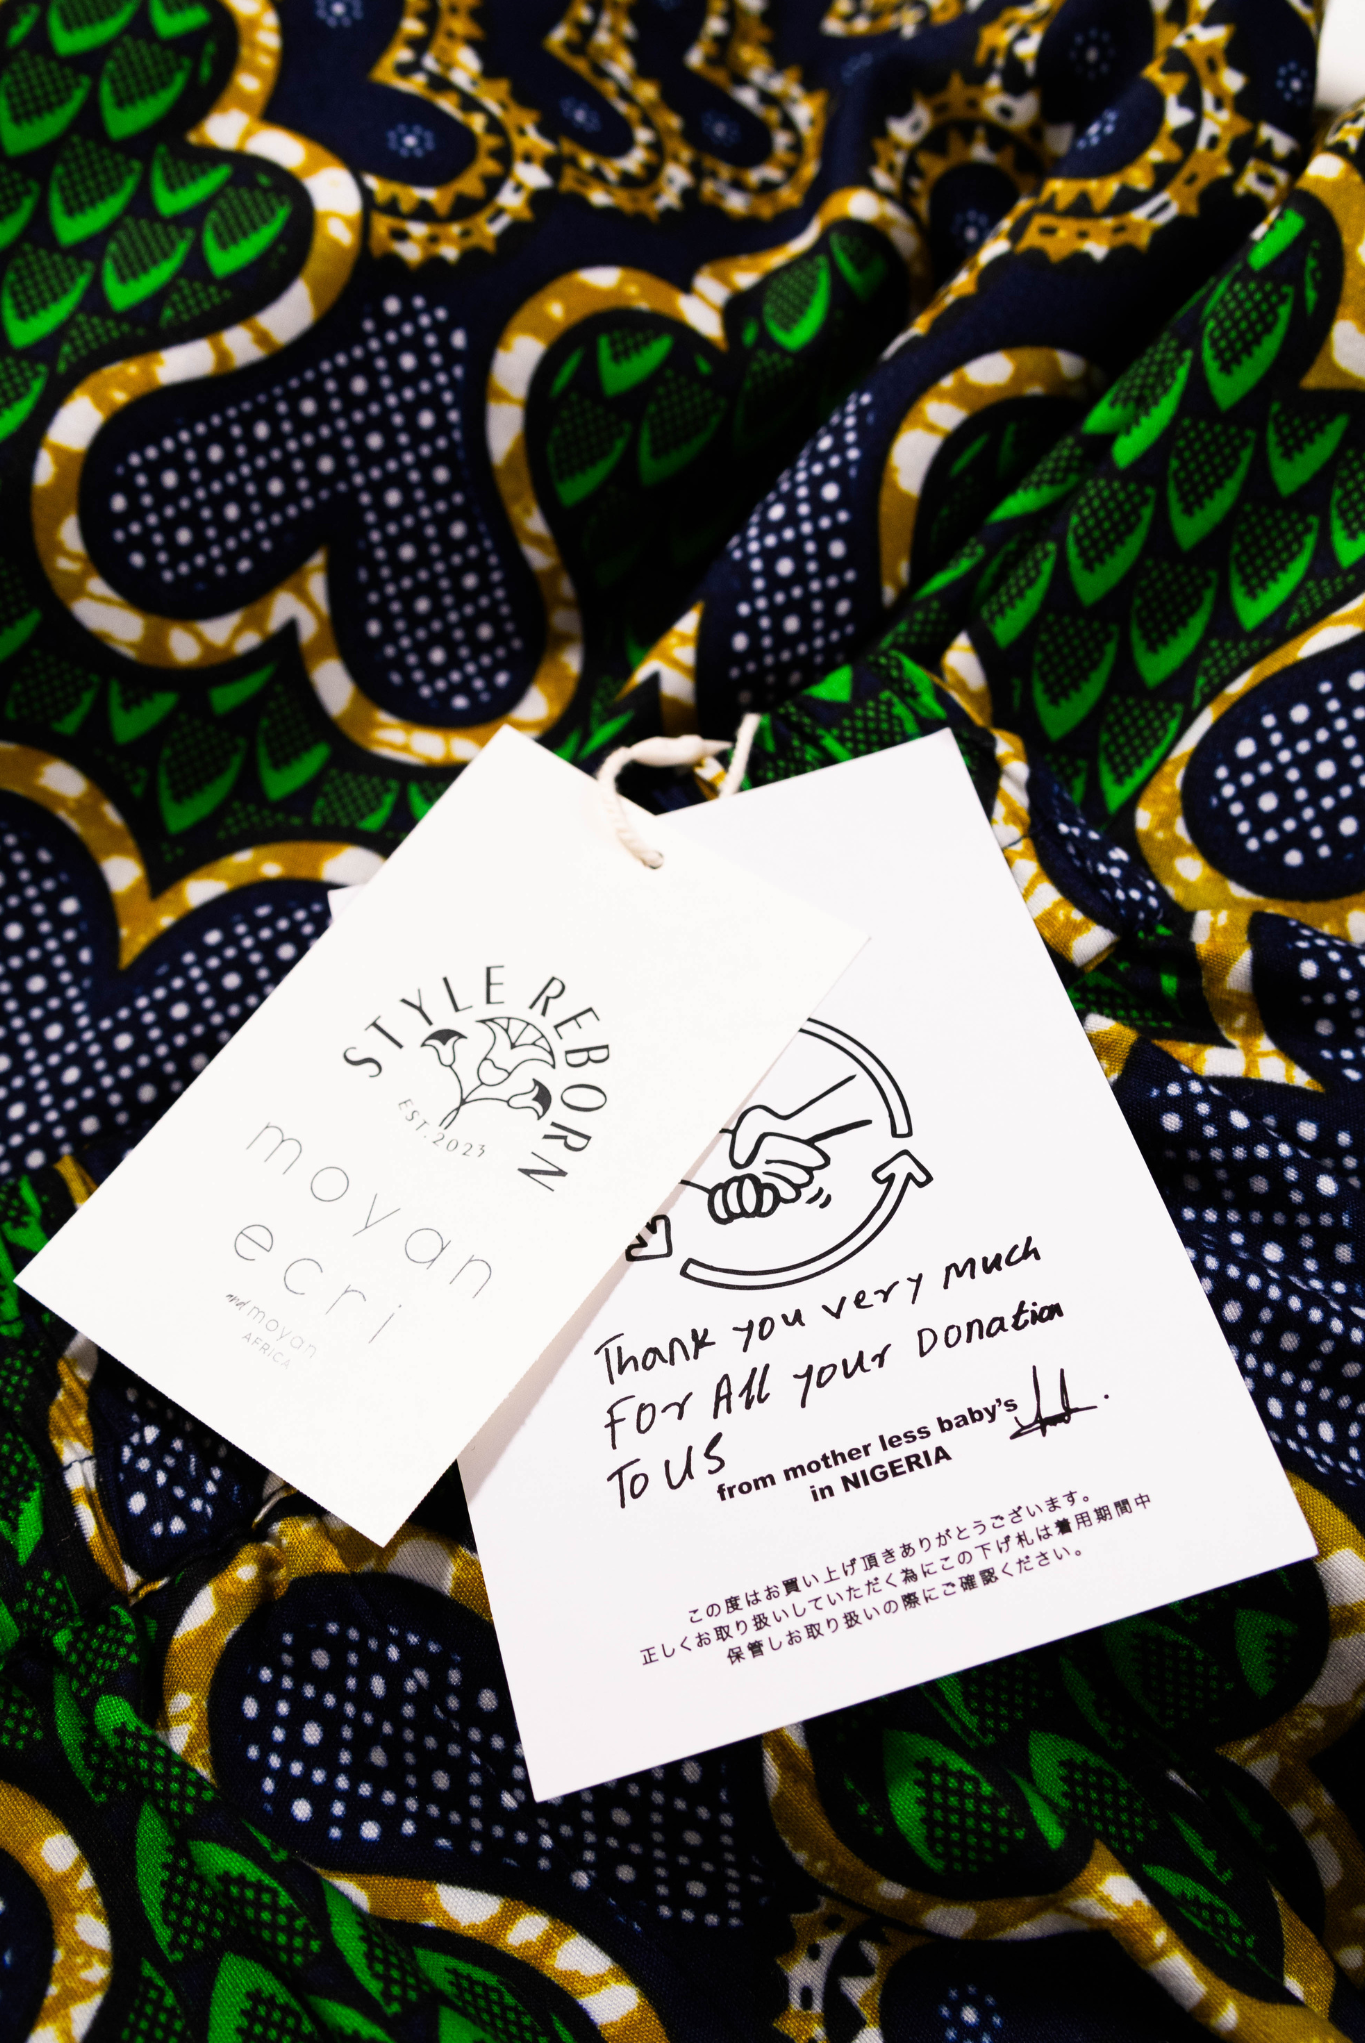 STYLE REBORN
EST.2023
moyan
ecri
and moyan
AFRICA
Thank you very much
For All your Donation
To US
from mother less baby's
in NIGERIA
この度はお買い上げ頂きありがとうございます。
正しくお取り扱いしていただく為にこの下げ札は着用期間中
保管しお取り扱いの際にご確認ください。